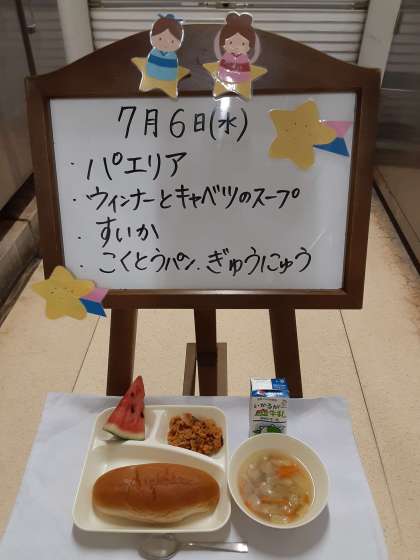 7月6日(水)
・パエリア
・ウィンナーとキャベツのスープ
・すいか
・こくとうパン.ぎゅうにゅう
いかるが
牛乳